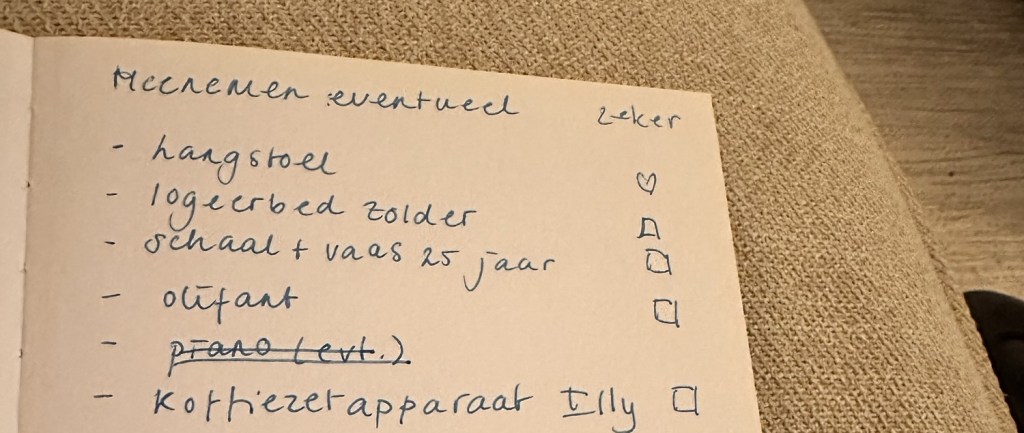 Meenemen eventueel zeker
- hangstoel ♡
- logeerbed zolder □
- schaal + vaas 25 jaar □
- olifant □
- ~~piano (evt.)~~
- Koffiezetapparaat Illy □